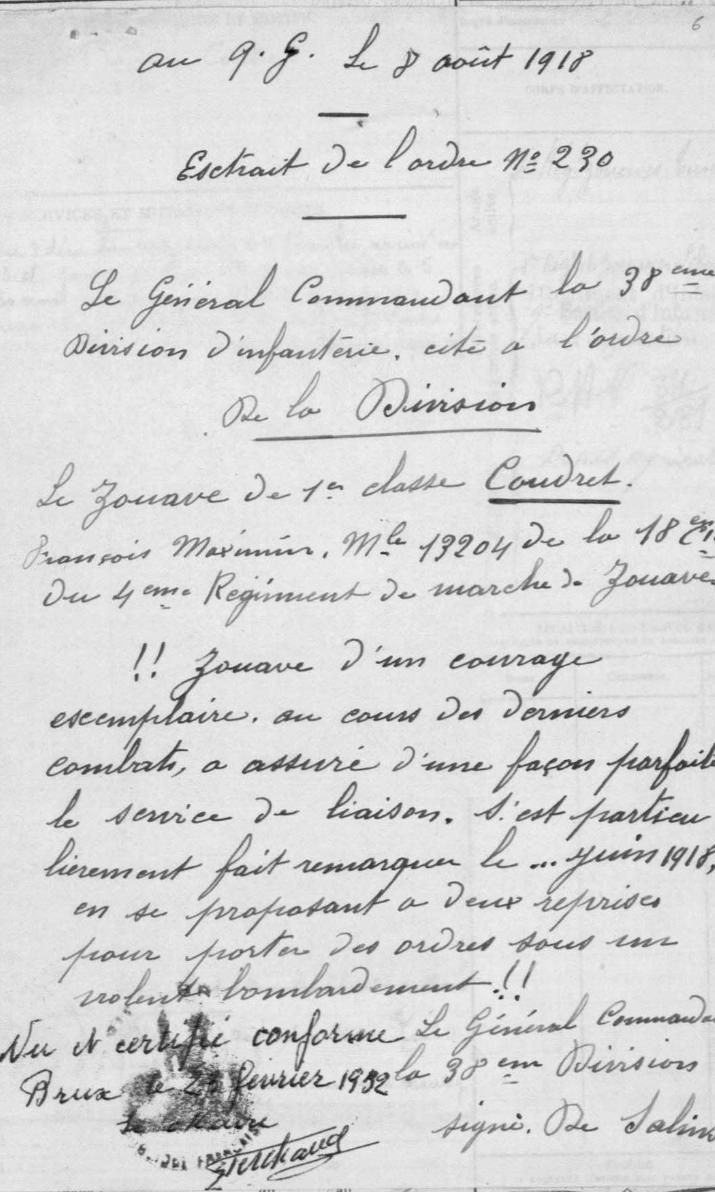 6
au Q. G. Le 8 août 1918
Esctrait de l'ordre No 230
Le Général Commandant la 38 eme
Division d'infanterie. cite a l'ordre
De la Division
Le Zouave de 1ere classe Coudret.
François Maximin. Mle 13204 de la 18 Cie
Du 4 eme Regiment de marche de Zouaves
!! Zouave d'un courage
escemplaire. au cours des derniers
combats, a assuré d'une façon parfaite
le service de liaison. S'est particu
lierement fait remarquer le ... Juin 1918,
en se proposant a deux reprises
pour porter des ordres sous un
violent bombardement. !!
Vu et certifié conforme Le Général Commandant
Brux le février 1932 la 38 eme Division
Le Maire signé. De Salins